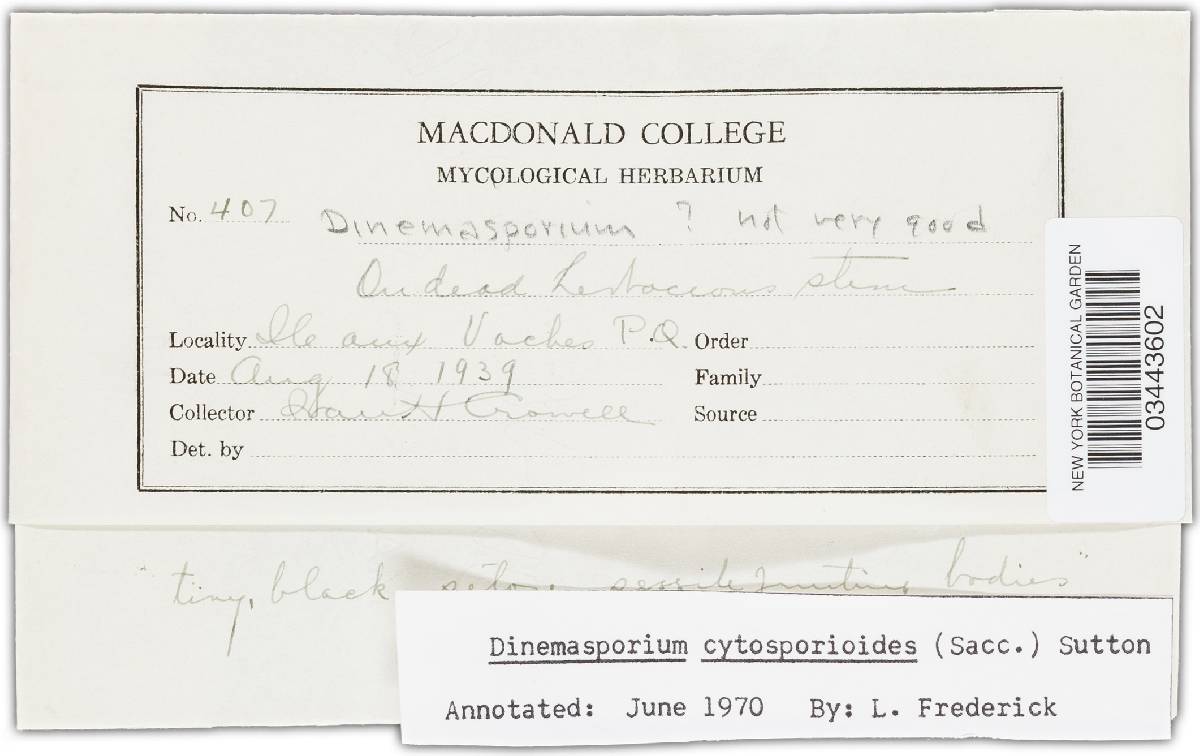 MACDONALD COLLEGE
MYCOLOGICAL HERBARIUM
No. 407 Dinemasporium ? not very good
On dead herbaceous stem
Locality Ile aux Vaches P.Q. Order
Date Aug 18 1939 Family
Collector Ivan H Crowell Source
Det. by
NEW YORK BOTANICAL GARDEN
03443602
"tiny, black sessile fruiting bodies"
Dinemasporium cytosporioides (Sacc.) Sutton
Annotated: June 1970 By: L. Frederick